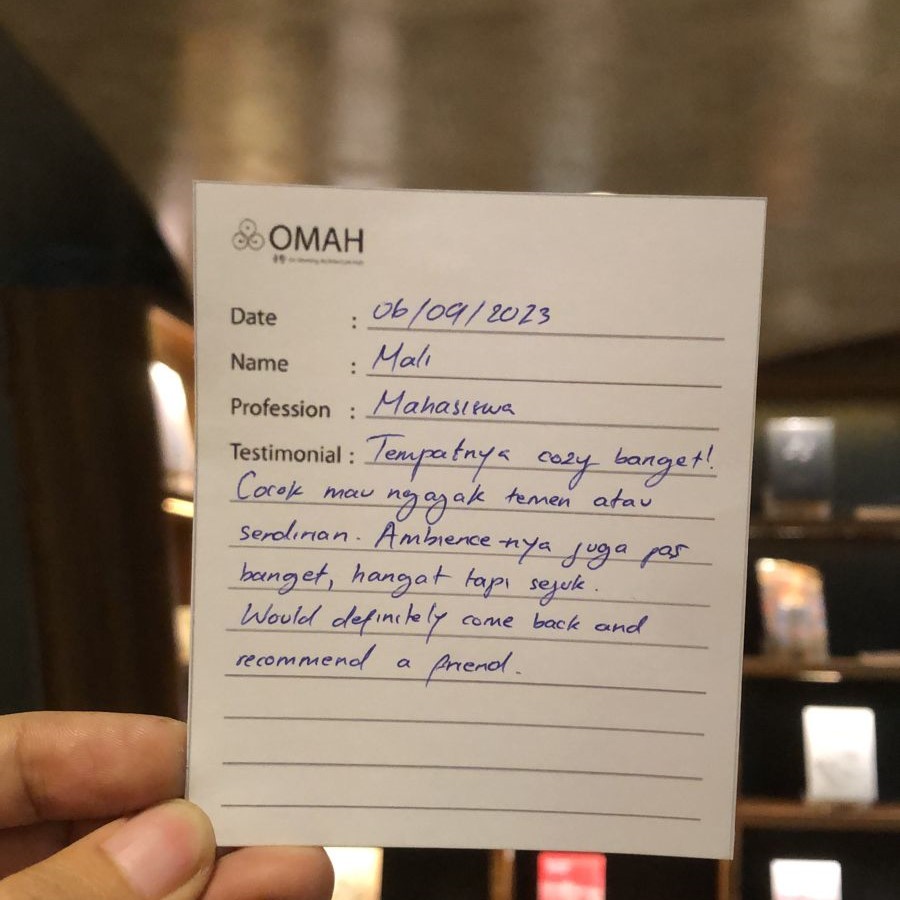 OMAH
Date : 06/09/2023
Name : Mali
Profession : Mahasiswa
Testimonial : Tempatnya cozy banget!
Cocok mau ngajak temen atau
sendirian. Ambience-nya juga pas
banget, hangat tapi sejuk.
Would definitely come back and
recommend a friend.